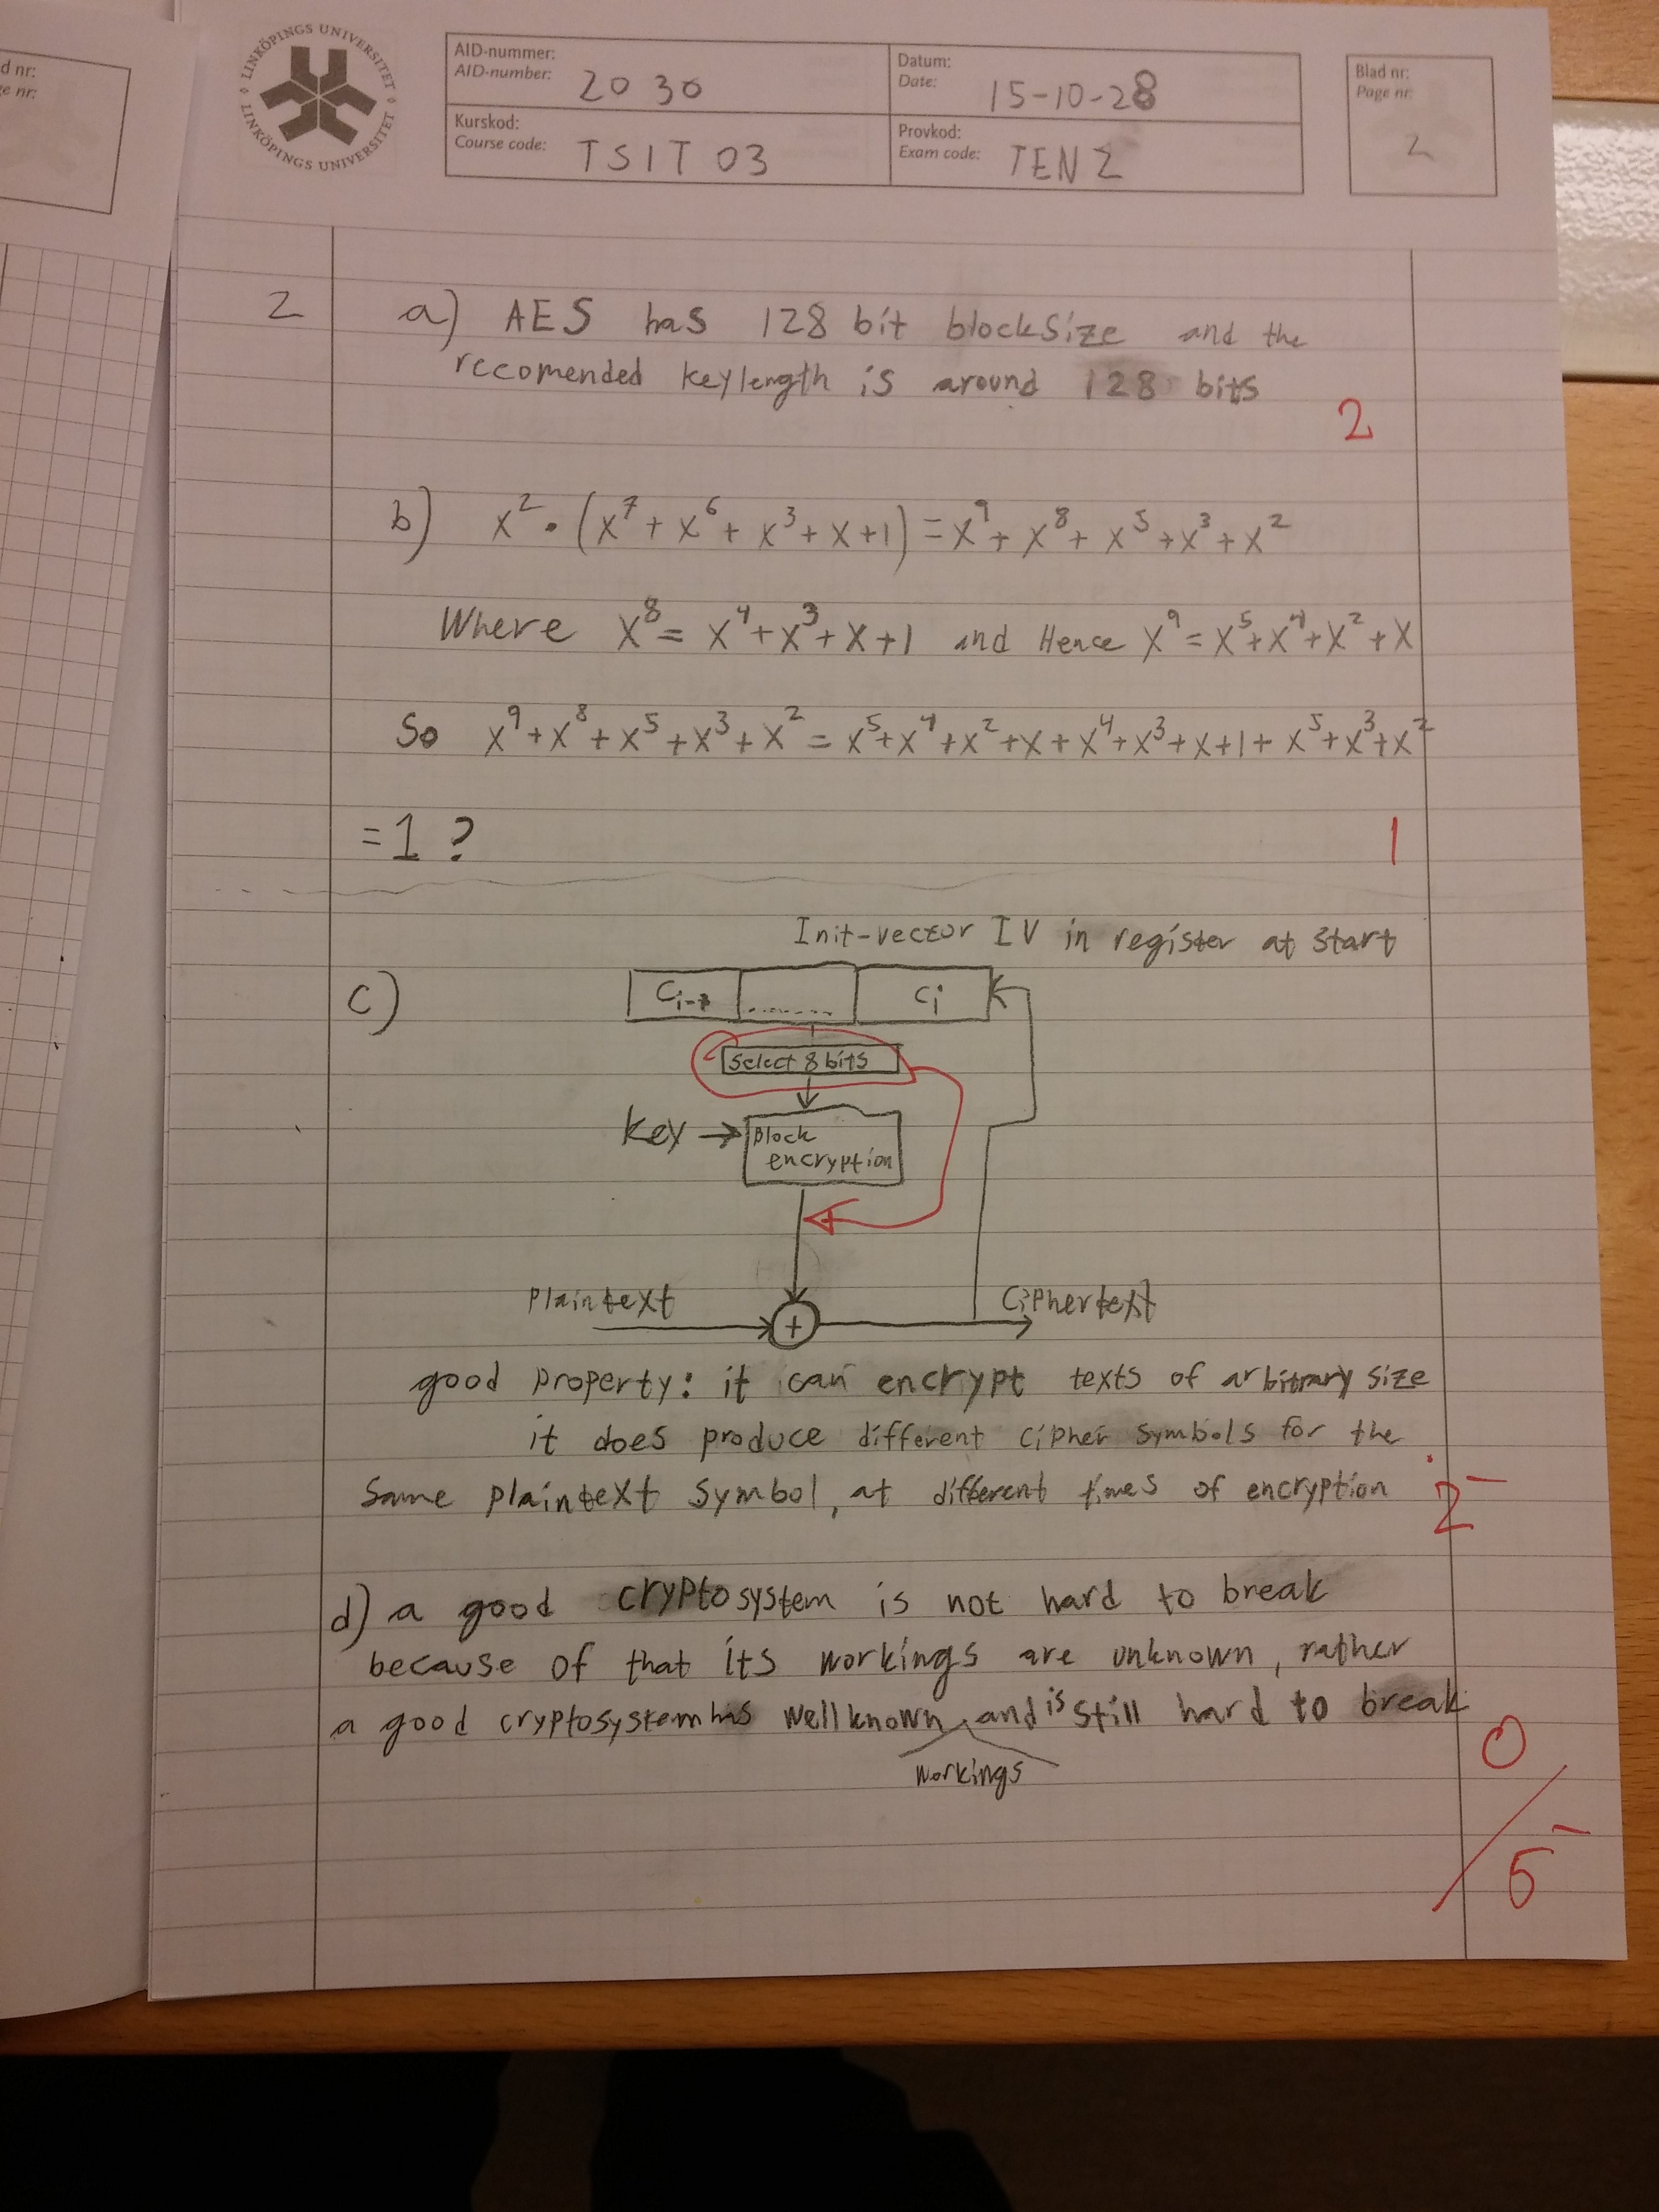 d nr:
e nr:
LINKÖPINGS UNIVERSITET
LINKÖPINGS UNIVERSITET
AID-nummer:
AID-number: 2030
Datum:
Date: 15-10-28
Blad nr:
Page nr:
2
Kurskod:
Course code: TSIT 03
Provkod:
Exam code: TEN 2
2 a) AES has 128 bit blocksize and the
reccomended keylength is around 128 bits
2
b) x² · (x⁷ + x⁶ + x³ + x + 1) = x⁹ + x⁸ + x⁵ + x³ + x²
Where x⁸ = x⁴ + x³ + x + 1 and Hence x⁹ = x⁵ + x⁴ + x² + x
So x⁹ + x⁸ + x⁵ + x³ + x² = x⁵ + x⁴ + x² + x + x⁴ + x³ + x + 1 + x⁵ + x³ + x²
= 1 ?
1
Init-vector IV in register at start
c) Ci-7 ........ Ci
Select 8 bits
Key → Block
encryption
Plaintext + Ciphertext
good property: it can encrypt texts of arbitrary size
it does produce different cipher symbols for the
same plaintext symbol, at different times of encryption
2⁻
d) a good cryptosystem is not hard to break
because of that its workings are unknown, rather
a good cryptosystem has well known and is still hard to break
workings
0
/ 5⁻